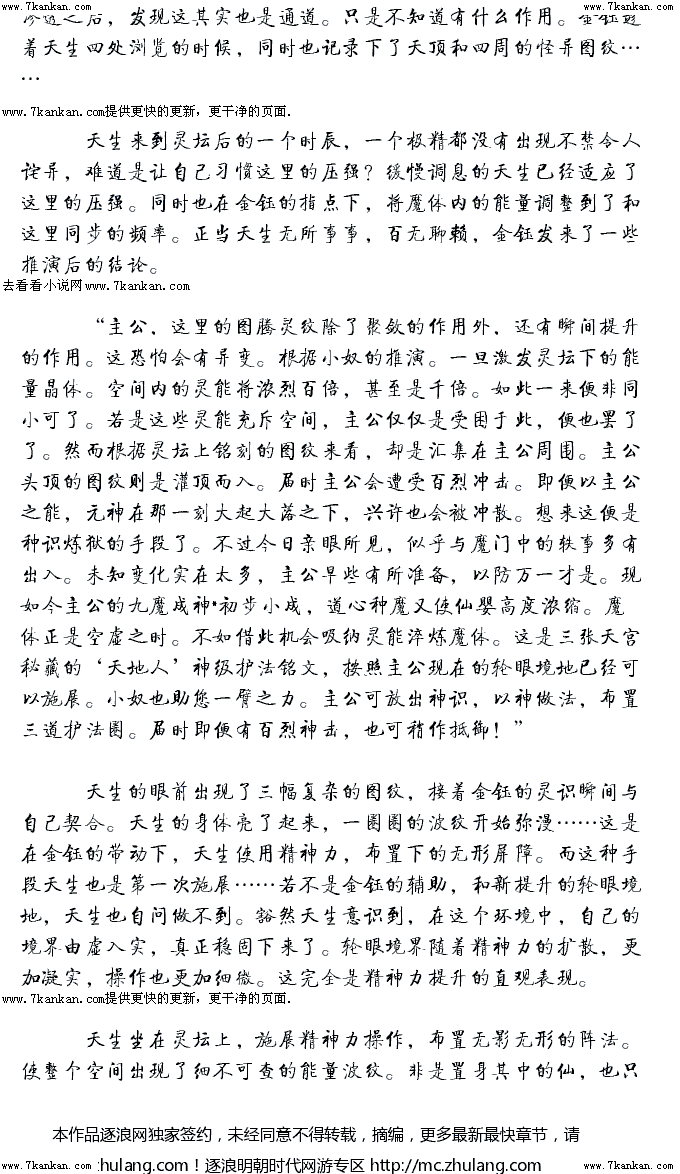 www.7kankan.com www.7kankan.com
渗透之后，发现这其实也是通道。只是不知道有什么作用。金钰随
着天生四处浏览的时候，同时也记录下了天顶和四周的怪异图纹…
…
www.7kankan.com提供更快的更新，更干净的页面.
天生来到灵坛后的一个时辰，一个极精都没有出现不禁令人
诧异，难道是让自己习惯这里的压强？缓慢调息的天生已经适应了
这里的压强。同时也在金钰的指点下，将魔体内的能量调整到了和
这里同步的频率。正当天生无所事事，百无聊赖，金钰发来了一些
推演后的结论。
去看看小说网www.7kankan.com
“主公，这里的图腾灵纹除了聚敛的作用外，还有瞬间提升
的作用。这恐怕会有异变。根据小奴的推演。一旦激发灵坛下的能
量晶体。空间内的灵能将浓烈百倍，甚至是千倍。如此一来便非同
小可了。若是这些灵能充斥空间，主公仅仅是受困于此，便也罢了
了。然而根据灵坛上铭刻的图纹来看，却是汇集在主公周围。主公
头顶的图纹则是灌顶而入。届时主公会遭受百烈冲击。即便以主公
之能，元神在那一刻大起大落之下，兴许也会被冲散。想来这便是
种识炼狱的手段了。不过今日亲眼所见，似乎与魔门中的轶事多有
出入。未知变化实在太多，主公早些有所准备，以防万一才是。现
如今主公的九魔成神*初步小成，道心种魔又使仙婴高度浓缩。魔
体正是空虚之时。不如借此机会吸纳灵能淬炼魔体。这是三张天宫
秘藏的‘天地人’神级护法铭文，按照主公现在的轮眼境地已经可
以施展。小奴也助您一臂之力。主公可放出神识，以神做法，布置
三道护法圈。届时即便有百烈神击，也可稍作抵御！”
天生的眼前出现了三幅复杂的图纹，接着金钰的灵识瞬间与
自己契合。天生的身体亮了起来，一圈圈的波纹开始弥漫……这是
在金钰的带动下，天生使用精神力，布置下的无形屏障。而这种手
段天生也是第一次施展……若不是金钰的辅助，和新提升的轮眼境
地，天生也自问做不到。豁然天生意识到，在这个环境中，自己的
境界由虚入实，真正稳固下来了。轮眼境界随着精神力的扩散，更
加凝实，操作也更加细微。这完全是精神力提升的直观表现。
www.7kankan.com提供更快的更新，更干净的页面.
天生坐在灵坛上，施展精神力操作，布置无影无形的阵法。
使整个空间出现了细不可查的能量波纹。非是置身其中的仙，也只
本作品逐浪网独家签约，未经同意不得转载，摘编，更多最新最快章节，请
www.7kankan.com zhulang.com！逐浪明朝时代网游专区 http://mc.zhulang.com www.7kankan.com